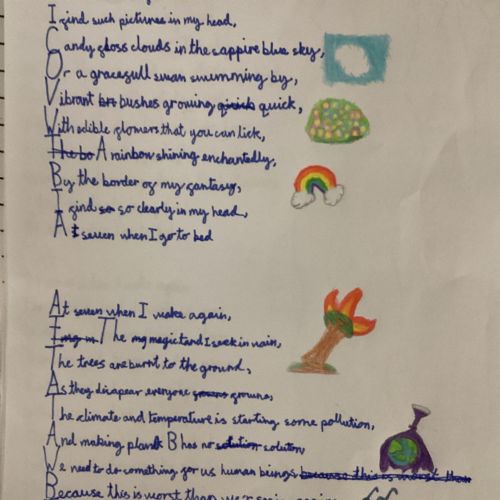 I find such pictures in my head,
Candy floss clouds in the sappire blue sky,
Or a gracefull swan swimming by,
Vibrant bushes growing quick,
With edible flowers that you can lick,
A rainbow shining enchantedly,
By the border of my fantasy,
I find so clearly in my head,
At seven when I go to bed
At seven when I wake again,
The magic land I seek in vain,
The trees are burnt to the ground,
As they disapear everyone growns,
The climate and temperature is starting some pollution,
And making planet B has no solution,
We need to do something for us human beings
Because this is worst than